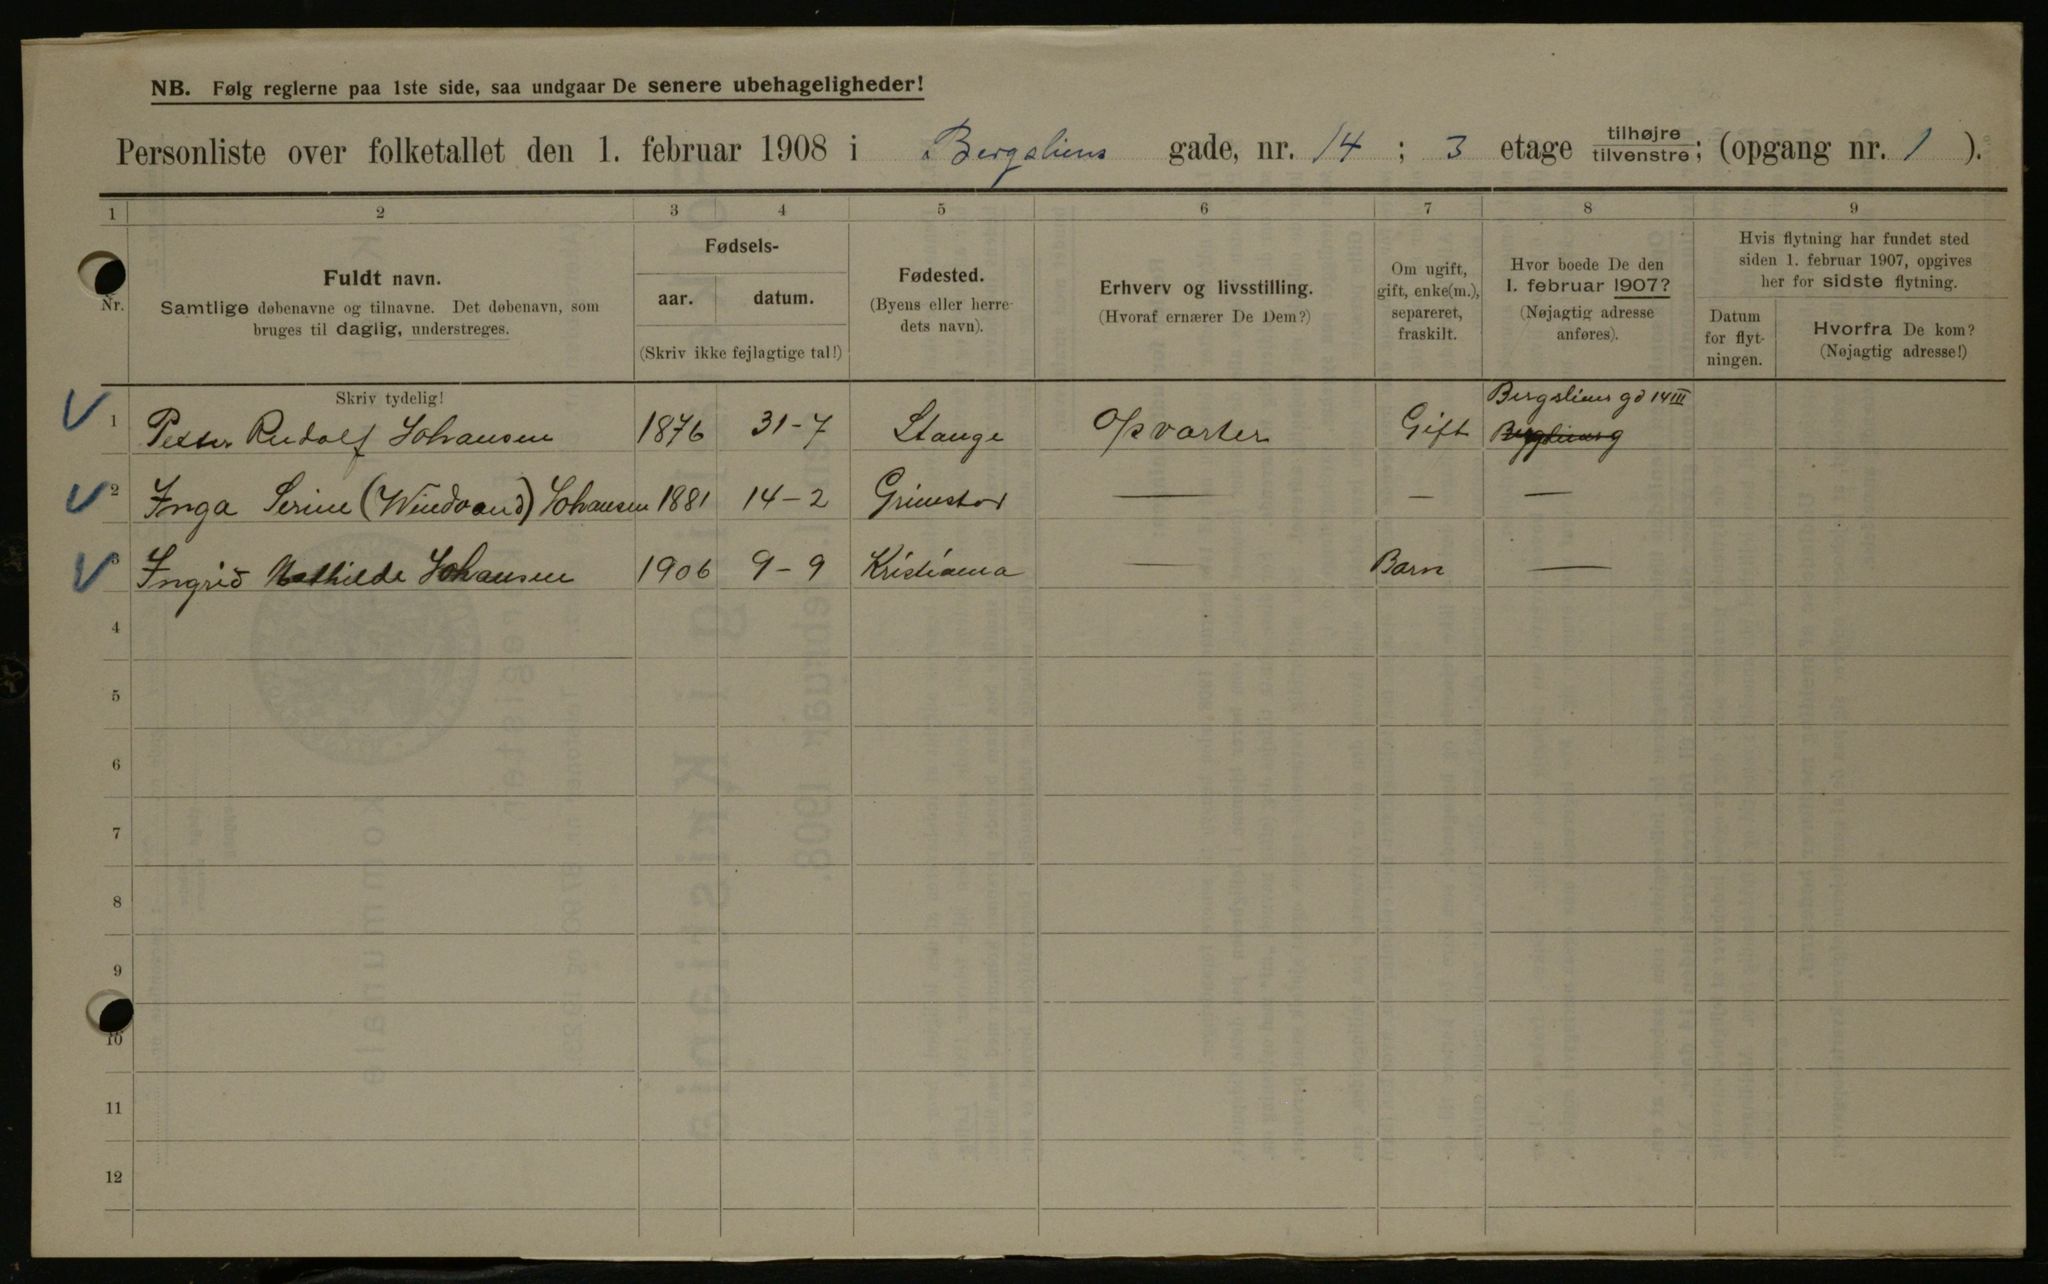 NB. Følg reglerne paa 1ste side, saa undgaar De senere ubehageligheder!
Personliste over folketallet den 1. februar 1908 i Bergsliens gade, nr. 14 ; 3 etage tilhøjre/tilvenstre; (opgang nr. 1 ).
1 2 3 4 5 6 7 8 9
Nr.
Fuldt navn.
Samtlige døbenavne og tilnavne. Det døbenavn, som
bruges til daglig, understreges.
Fødsels-
aar. datum.
(Skriv ikke fejlagtige tal!)
Fødested.
(Byens eller herre-
dets navn).
Erhverv og livsstilling.
(Hvoraf ernærer De Dem?)
Om ugift,
gift, enke(m.),
separeret,
fraskilt.
Hvor boede De den
1. februar 1907?
(Nøjagtig adresse
anføres).
Hvis flytning har fundet sted
siden 1. februar 1907, opgives
her for sidste flytning.
Datum
for flyt-
ningen.
Hvorfra De kom?
(Nøjagtig adresse!)
Skriv tydelig!
Bergsliens gd 14 III
1 Petter Rudolf Johansen 1876 31-7 Stange Opvarter Gift
2 Inga Serine (Windvand) Johansen 1881 14-2 Grimstad — — —
3 Ingrid Mathilde Johansen 1906 9-9 Kristiania — Barn —
4
5
6
7
8
9
10
11
12